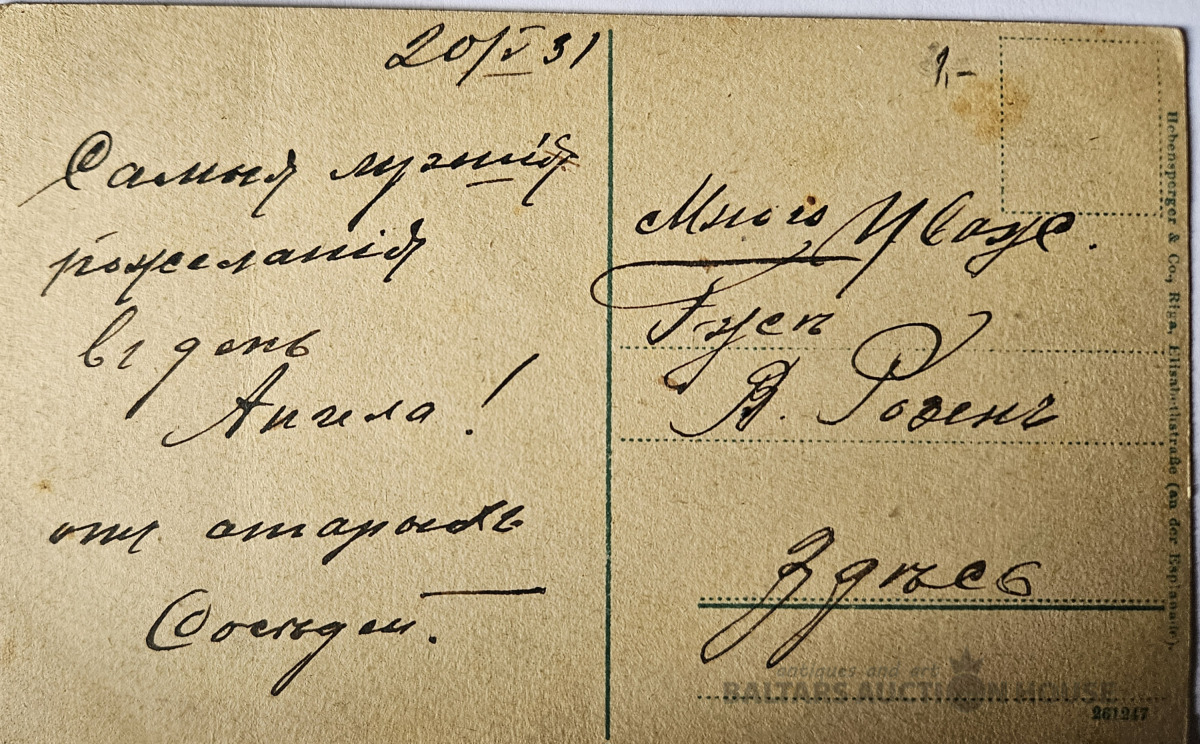 20/V 31
Самыя лучшія
пожеланія
въ день
Ангела!
отъ старыхъ
Сосѣдей.
1,-
Много Уваж.
В. Розенъ
Здѣсь
Hebensperger & Co., Riga, Elisabethstraße (an der Esplanade).
antiques and art
BALTARS AUCTION HOUSE
261247